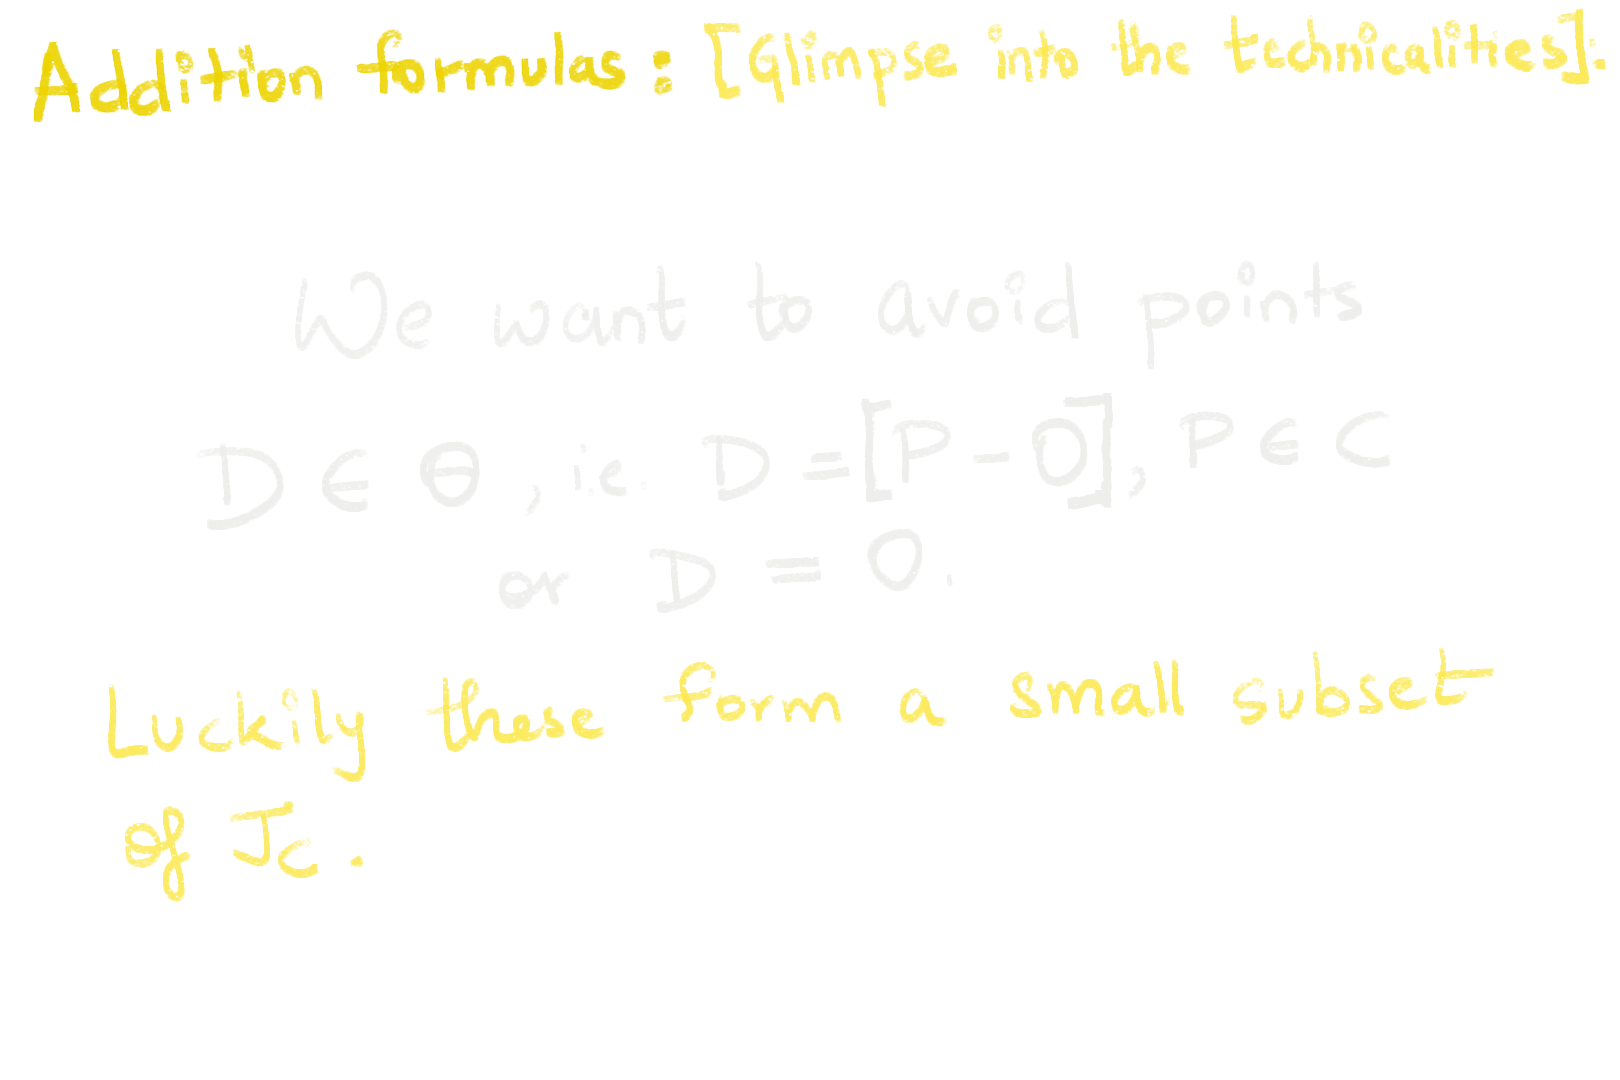 Addition formulas : [Glimpse into the technicalities].
We want to avoid points
D ∈ Θ, i.e. D = [P - O], P ∈ C
or D = O.
Luckily these form a small subset
of J_C.